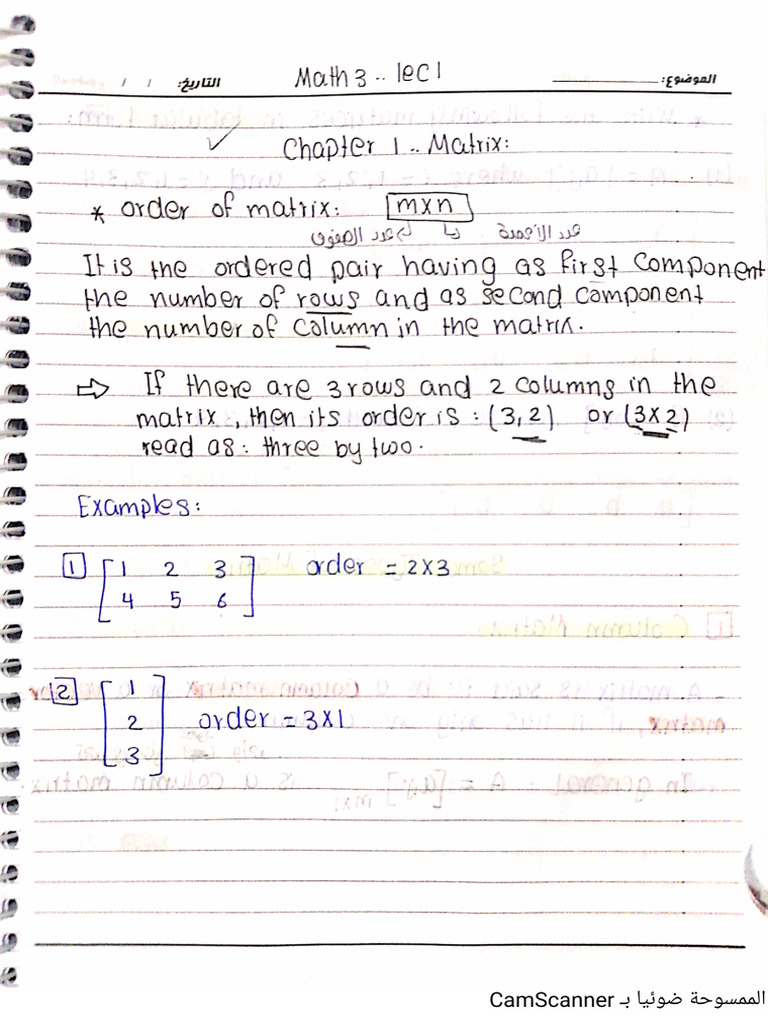 الموضوع: Math 3 .. lec 1 التاريخ: / /
Chapter 1 .. Matrix:
* order of matrix: m×n
عدد الصفوف عدد الأعمدة
It is the ordered pair having as first component
the number of rows and as second component
the number of column in the matrix.
⇒ If there are 3 rows and 2 columns in the
matrix, then its order is : (3,2) or (3×2)
read as: three by two.
Examples:
1 [1 2 3 order = 2×3
4 5 6]
2 [1
2 order = 3×1
3]
الممسوحة ضوئيا بـ CamScanner